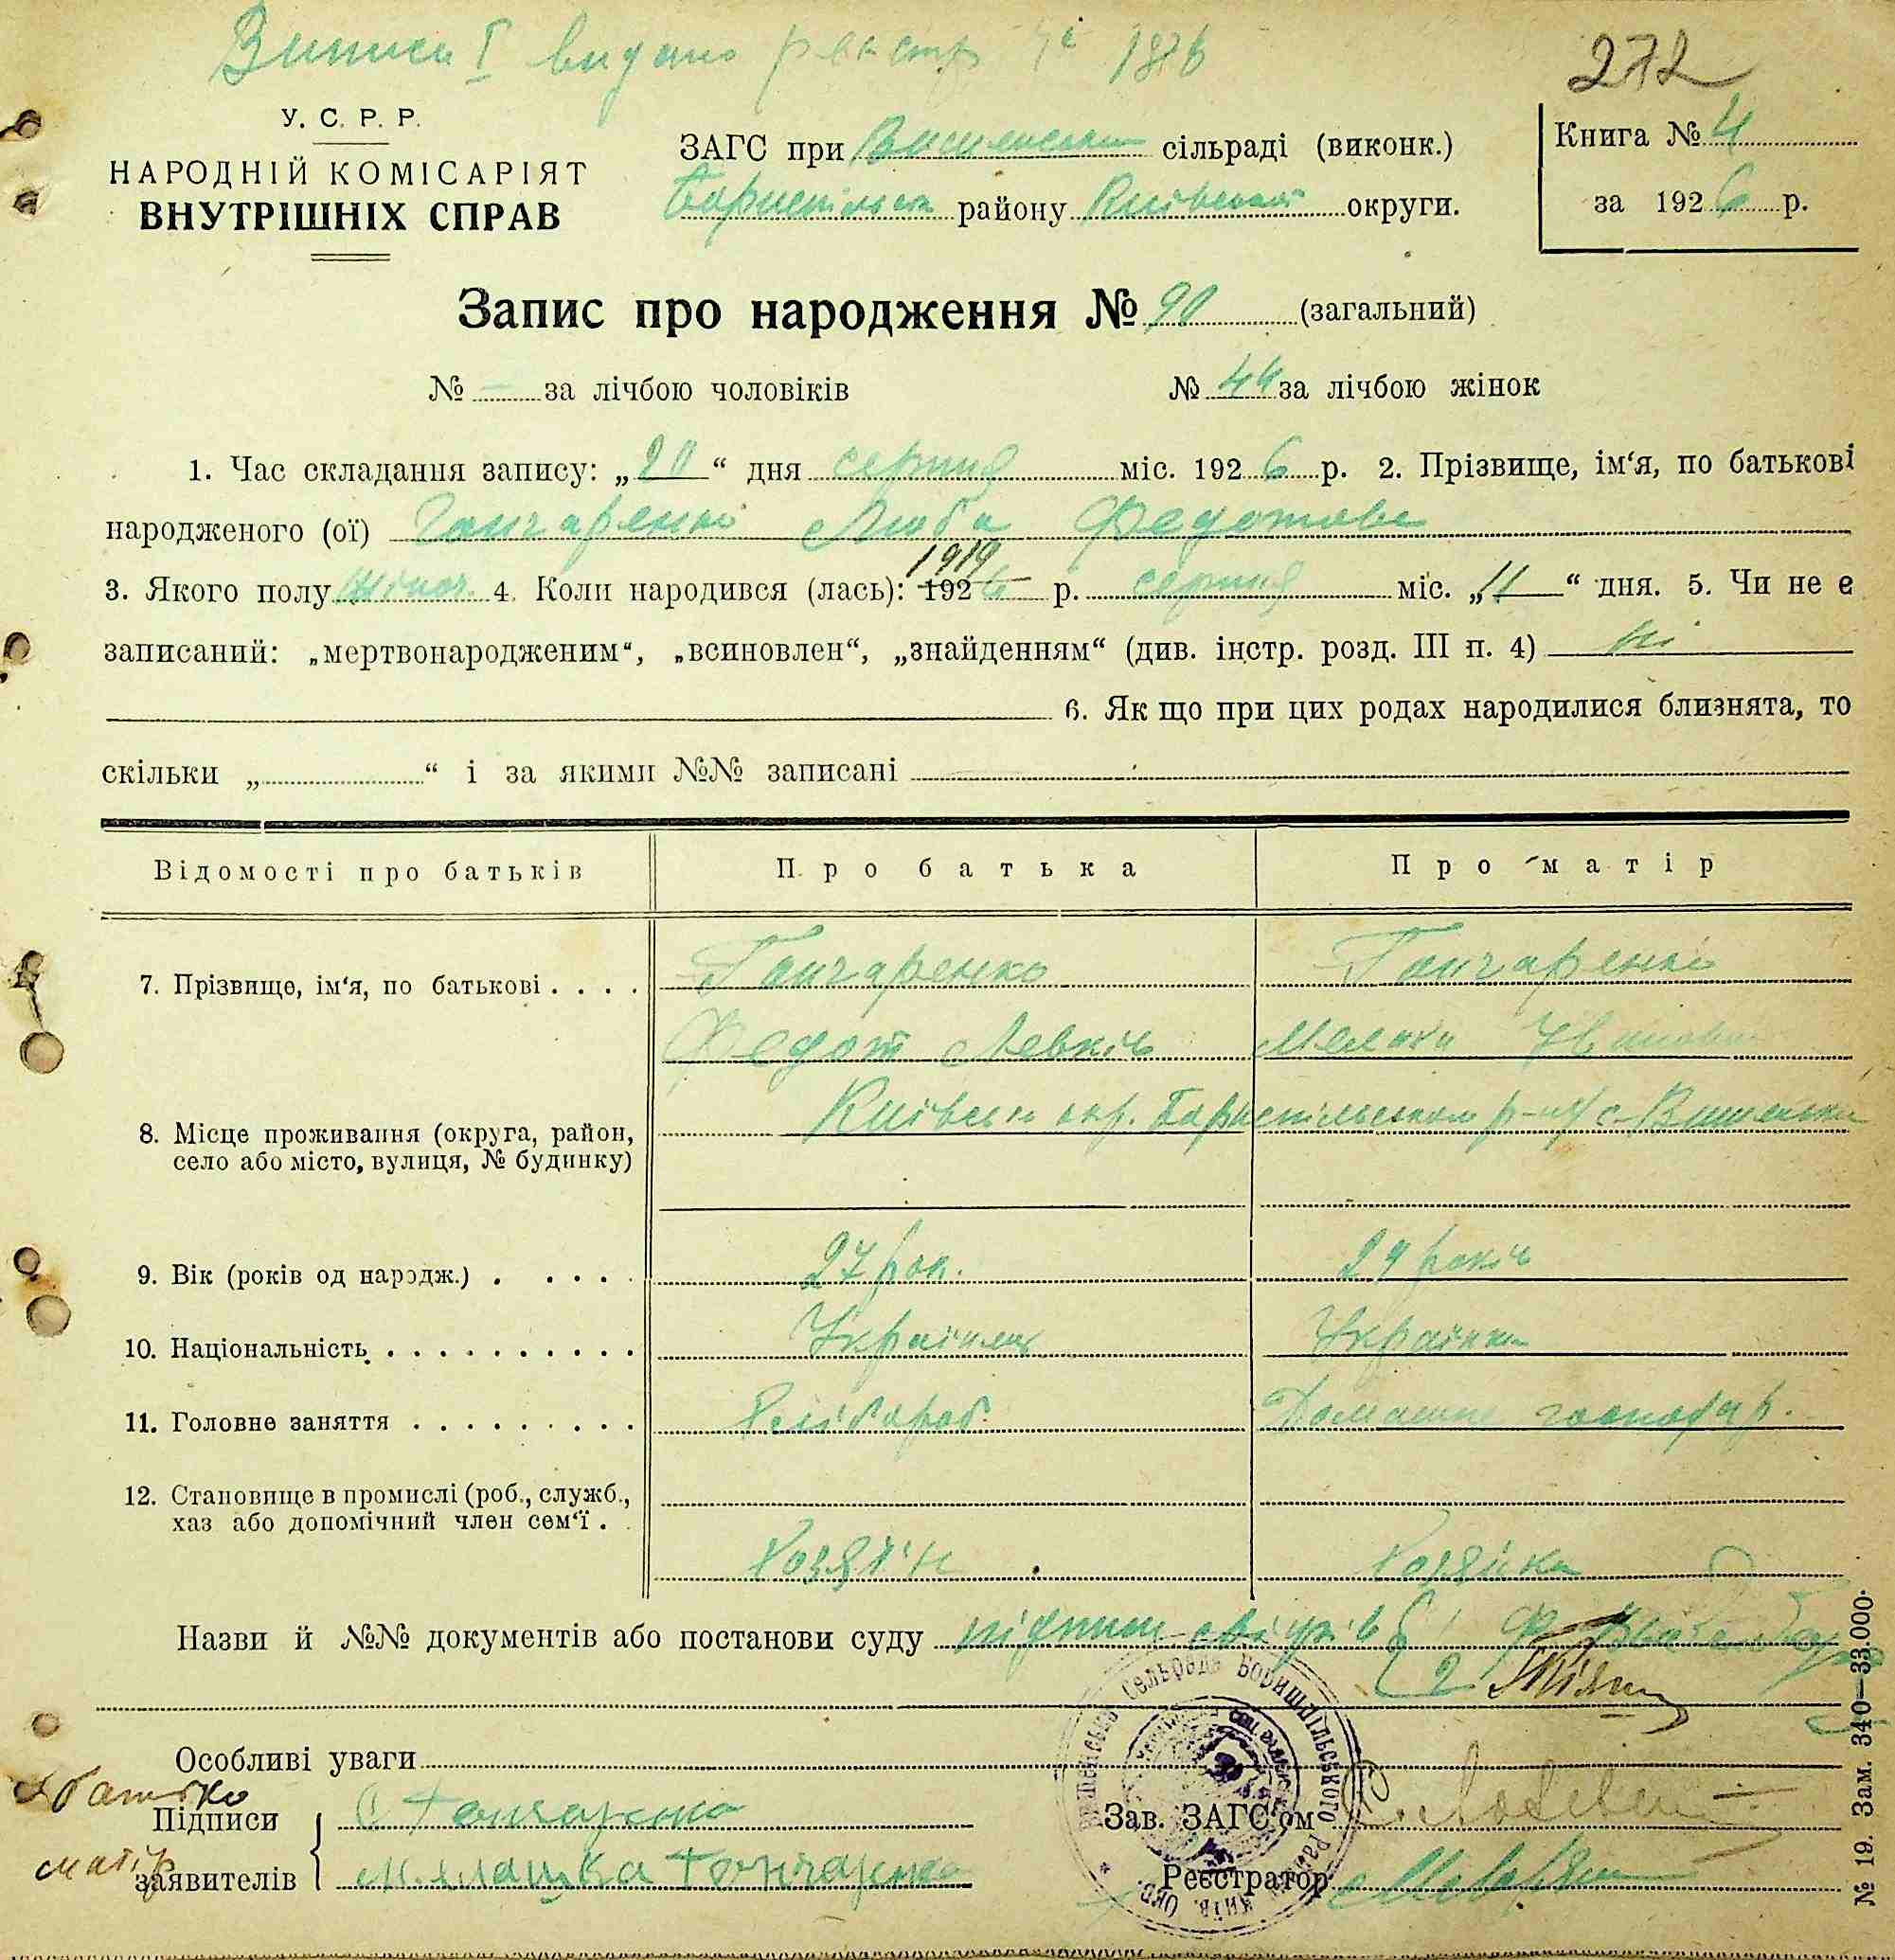 Виписи І видано реєстр № 1876
272
У. С. Р. Р.
НАРОДНІЙ КОМІСАРІЯТ
ВНУТРІШНІХ СПРАВ
ЗАГС при сільраді (виконк.)
Бориспільськ району Київської округи.
Книга № 4
за 1926 р.
Запис про народження № 90 (загальний)
№ — за лічбою чоловіків
№ 44 за лічбою жінок
1. Час складання запису: „20“ дня серпня міс. 1926 р. 2. Прізвище, ім‘я, по батькові
народженого (ої) Гончаренко Люба Федотова
1919
3. Якого полу жіноч. 4. Коли народився (лась): 1926 р. серпня міс. „11“ дня. 5. Чи не є
записаний: „мертвонародженим“, „всиновлен“, „знайденням“ (див. інстр. розд. III п. 4) ні
6. Як що при цих родах народилися близнята, то
скільки „ “ і за якими №№ записані
Відомості про батьків Про батька Про матір
7. Прізвище, ім‘я, по батькові . . . . Гончаренко Гончаренко
Федот Левків
Київськ окр. Бориспільськом р-ну с. Вишеньки
8. Місце проживання (округа, район,
село або місто, вулиця, № будинку)
9. Вік (років од народж.) . . . . . 27 рок. 29 років
10. Національність . . . . . . . . . . Українец Українка
11. Головне заняття . . . . . . . . . Хлібороб. Домашнє господар.
12. Становище в промислі (роб., служб.,
хаз або допомічний член сем‘ї . .
Хозяїн Хозяйка
Назви й №№ документів або постанови суду підпис свідків
2
Особливі уваги
батько
Підписи Гончаренко
Зав. ЗАГС‘ом
матір
заявителів Гончаренко
Реєстратор
№ 19. Зам. 340—33.000.